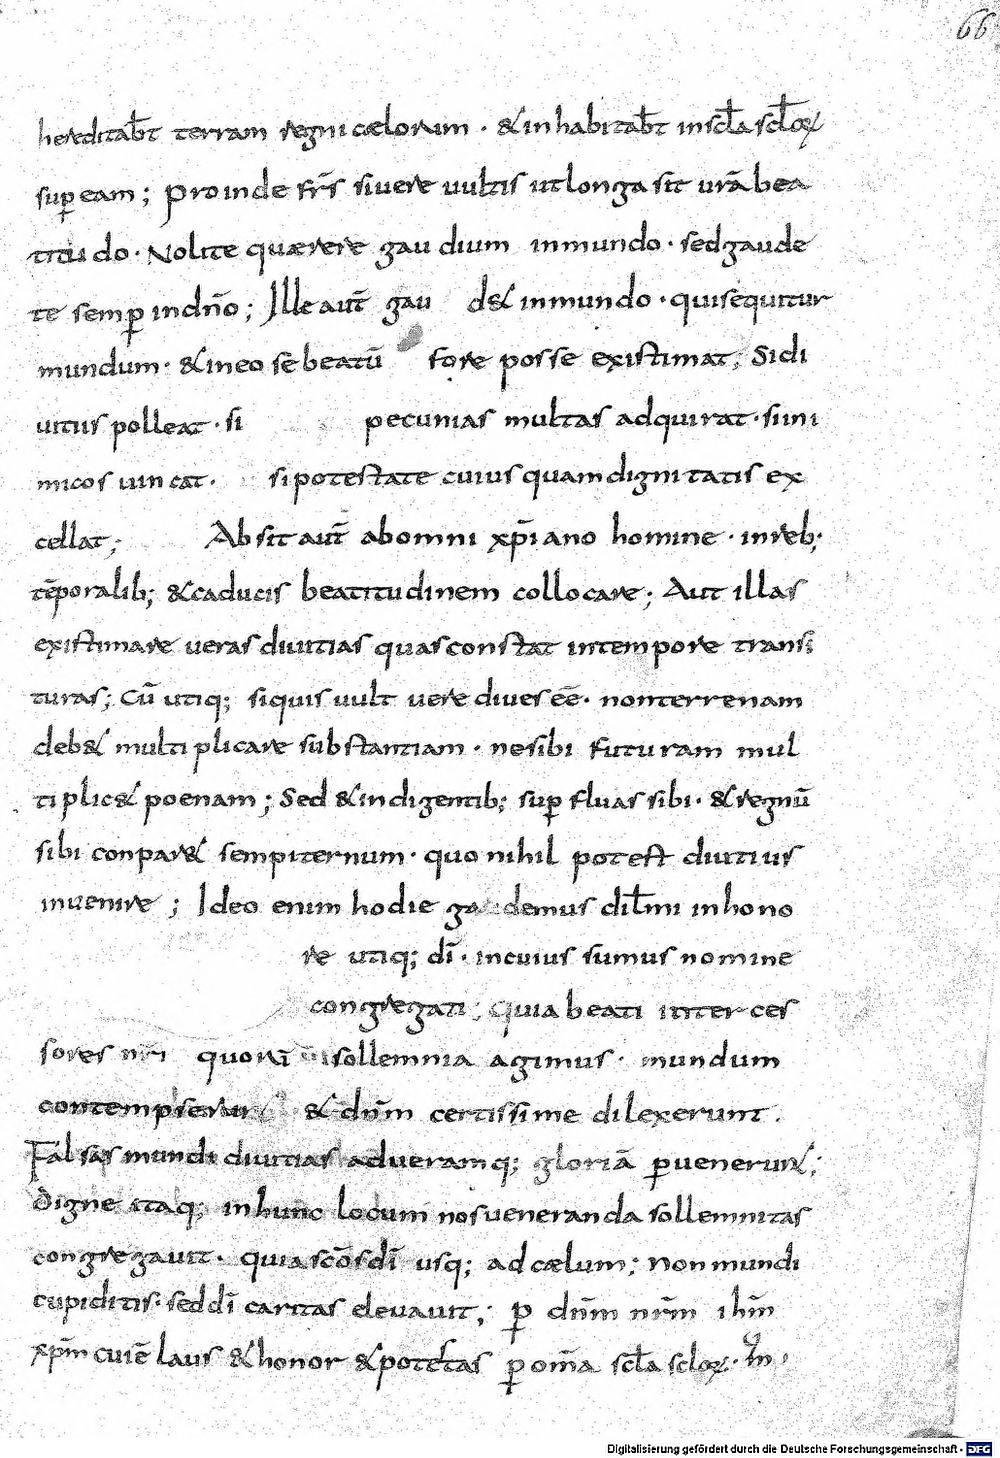 66
hereditabt̄ terram regni cælorum · & inhabitabt̄ in scl̄a scl̄oꝝ
sup̱ eam ; Proinde fr̄s si uere uultis ut longa sit ur̄a bea
titudo · Nolite quærere gaudium in mundo · sed gaude
te semp̱ in dn̄o ; Ille aut̄ gaud& in mundo · qui sequitur
mundum · & in eo se beatū fore posse existimat ; Si di
uitiis polleat · si pecunias multas adquirat · si ini
micos uincat · si potestate cuiusquam dignitatis ex
cellat ; Absit aut̄ ab omni xp̄iano homine · in reb;
tēporalib; & caducis beatitudinem collocare ; Aut illas
existimare ueras diuitias quas constat in tempore transi
turas ; Cū utiq; siquis uult uere diues eē · non terrenam
deb& multiplicare substantiam · ne sibi futuram mul
tiplic& poenam ; Sed & indigentib; sup̱fluas sibi · & regnū
sibi conpar& sempiternum · quo nihil potest diutius
inuenire ; Ideo enim hodie gaudemus dil̄mi in hono
re utiq; dī · in cuius sumus nomine
congregati ; Quia beati interces
sores nr̄i quorū sollemnia agimus · mundum
contempserunt & dn̄m certissime dilexerunt .
Falsas mundi diuitias ad ueramq; gloriā p̱uenerun& ;
Digne itaq; in hunc locum nos ueneranda sollemnitas
congregauit · quia sc̄os dī usq; ad cælum ; Non mundi
cupiditis · sed dī caritas eleuauit ; p̱ dn̄m nr̄m ih̄m
xp̄m cui ē laus & honor & potestas p̱ om̄a scl̄a scl̄oꝝ · am̄ .
Digitalisierung gefördert durch die Deutsche Forschungsgemeinschaft - DFG